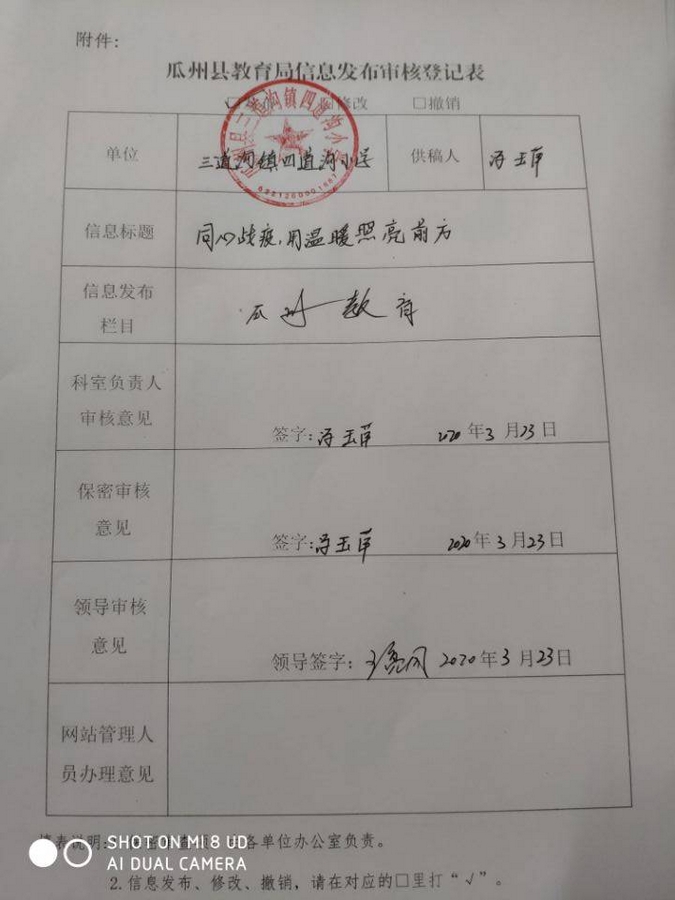 附件:
瓜州县教育局信息发布审核登记表
修改 □撤销
单位 三道沟镇四道沟小学 供稿人 冯玉萍
信息标题 同心战疫,用温暖照亮前方
信息发布栏目 瓜州教育
科室负责人审核意见 签字:冯玉萍 2020年3月23日
保密审核意见 签字:冯玉萍 2020年3月23日
领导审核意见 领导签字: 2020年3月23日
网站管理人员办理意见
填表说明: 各单位办公室负责。
SHOT ON MI 8 UD
AI DUAL CAMERA
2.信息发布、修改、撤销,请在对应的□里打“√”。